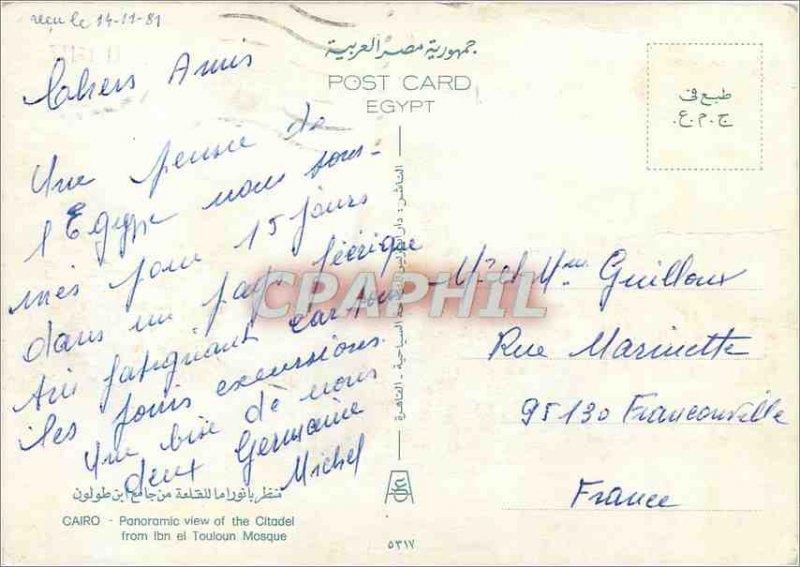 reçu le 14-11-81
جمهورية مصر العربية
POST CARD
EGYPT
طبع فى
ج.م.ع.
Cahers Amis
Une pensée de
l'Egypte nous som-
mes pour 15 jours
dans un pays féérique
fatiguant car tous
les jours excursions.
Une bise de nous
deux Germaine
Michel
Mr et Mme Guilloux
Rue Marinette
95130 Franconville
France
CPAPHIL
منظر بانوراما للقلعة من جامع ابن طولون
CAIRO - Panoramic view of the Citadel
from Ibn el Touloun Mosque
٥٣١٧